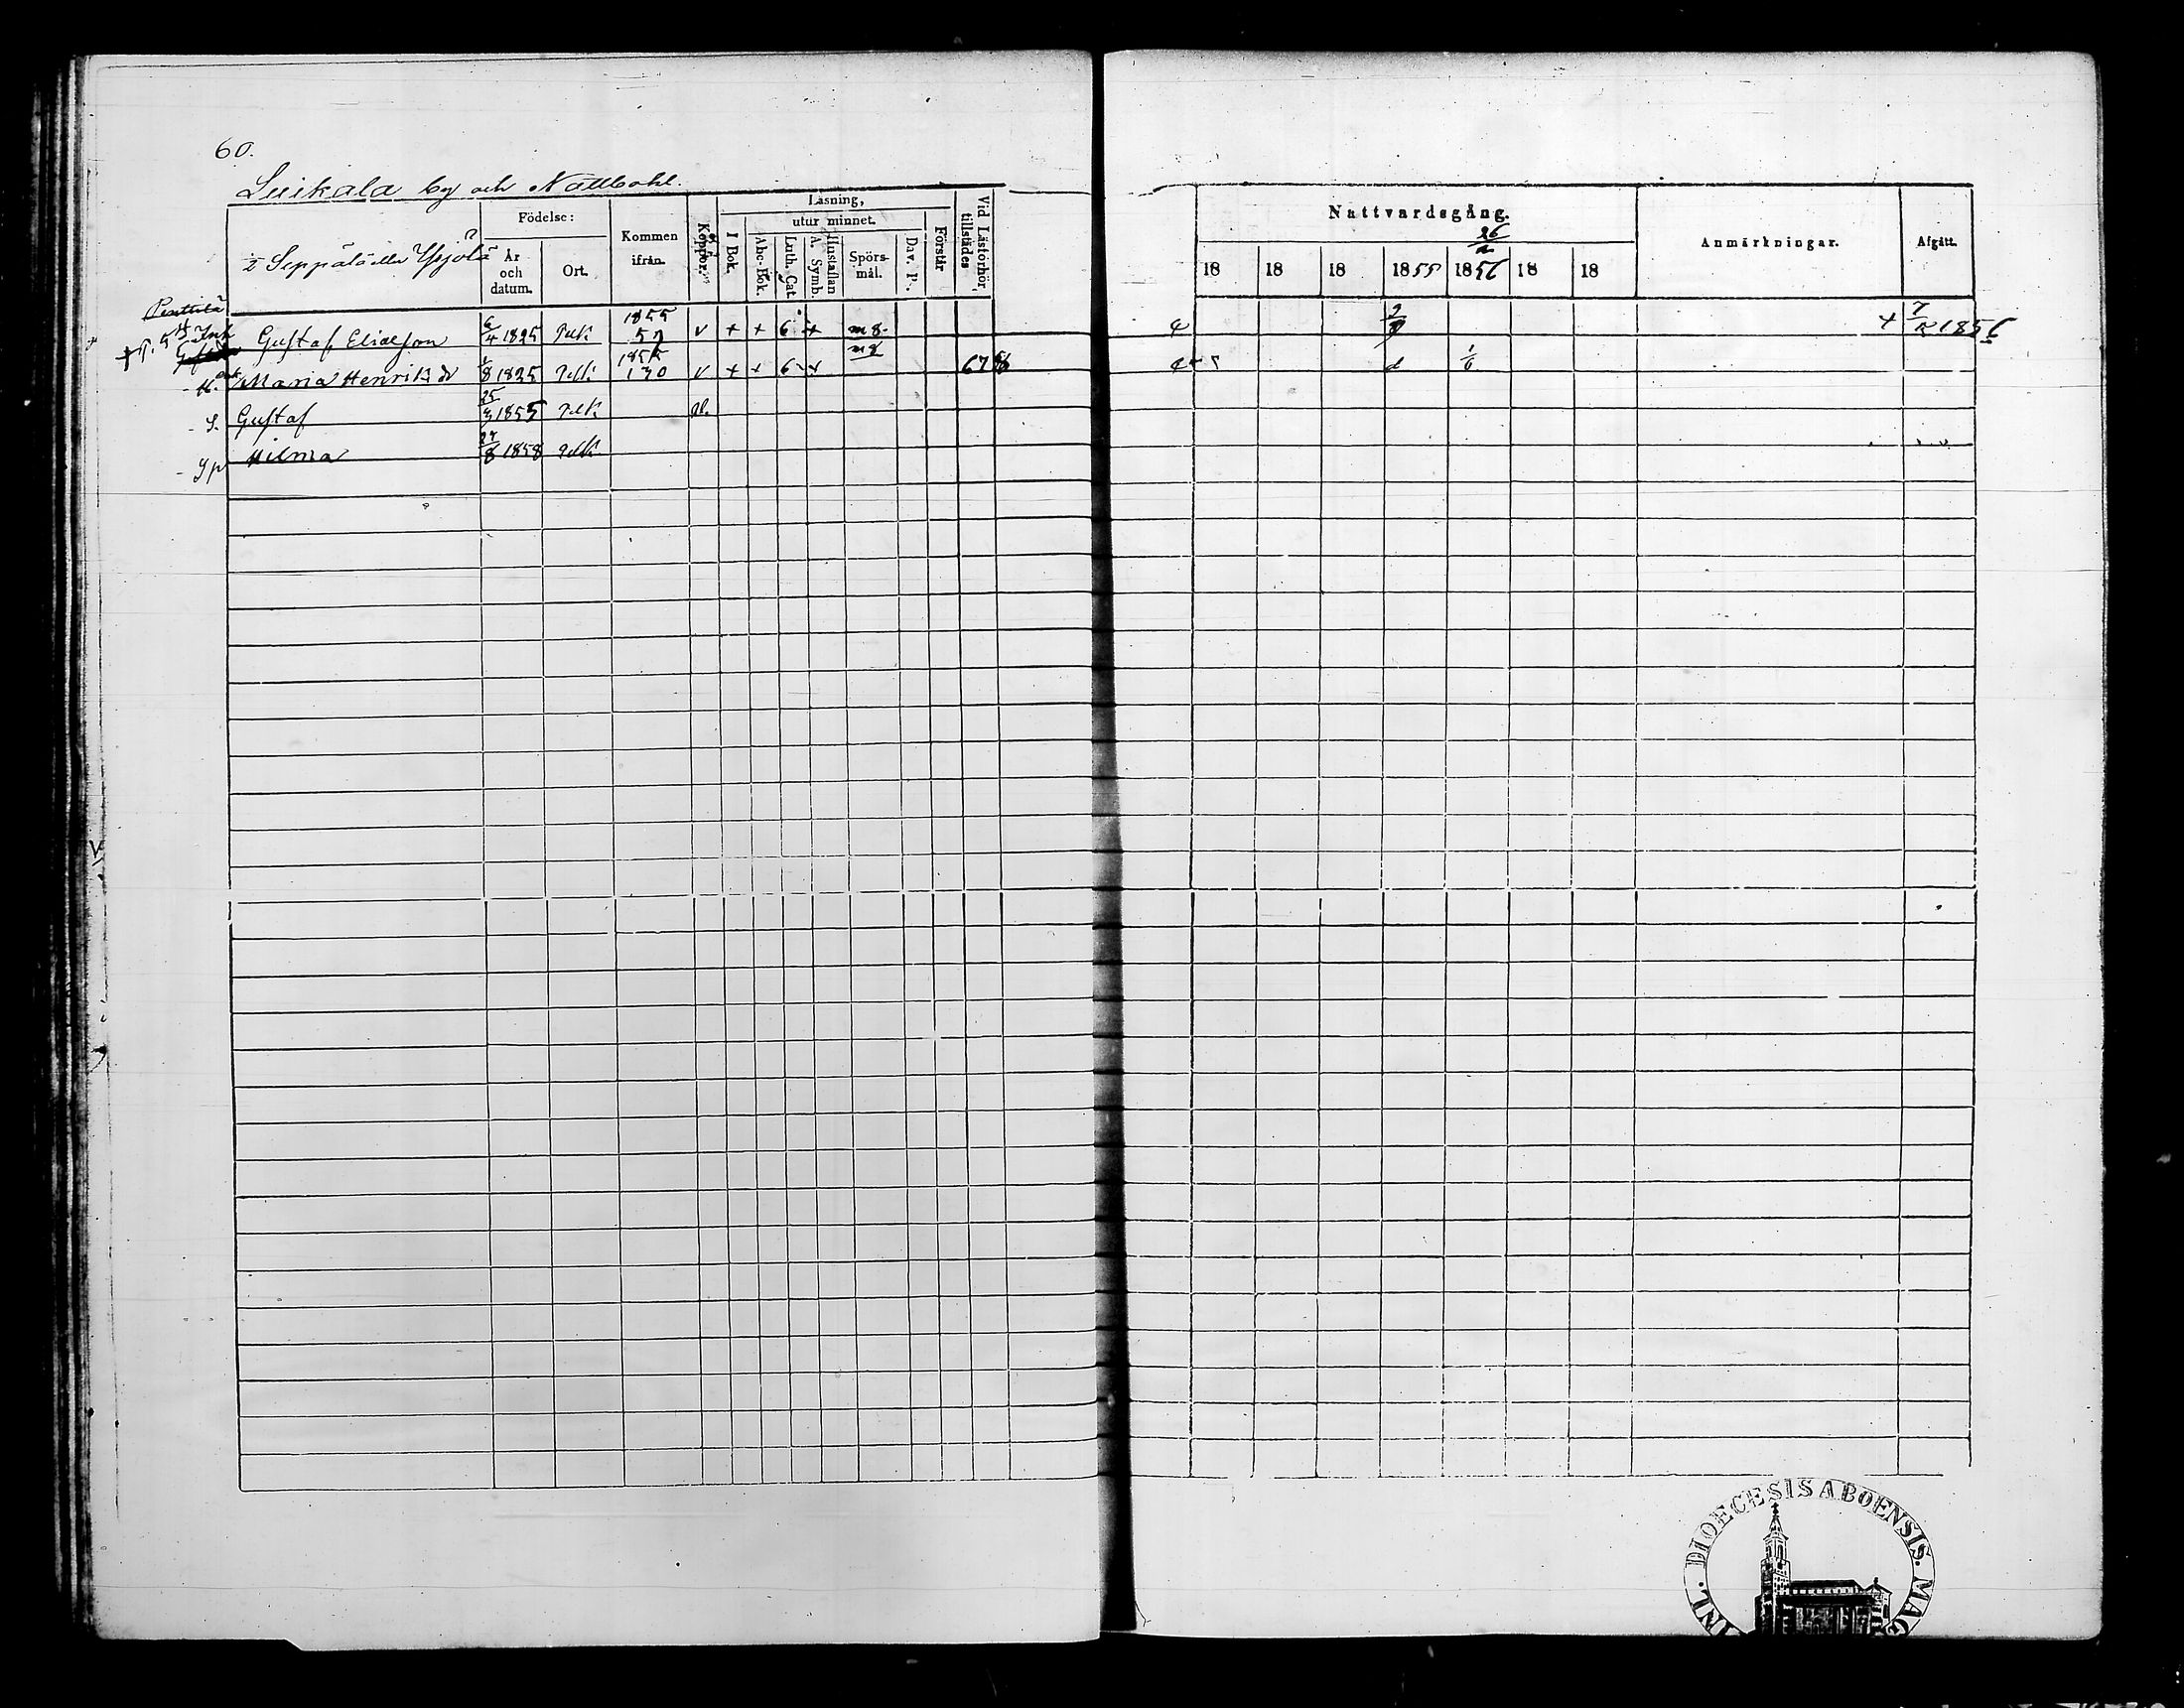 60.
Luikala by och Nattbohl.
½ Seppälä eller Yrjölä
Födelse:
År och datum.
Ort.
Kommen ifrån.
Koppor.
Läsning,
I Bok.
utur minnet.
Abc-Bok.
Luth. Cat.
A. Symb.
Hustaflan
Spörsmål.
Dav. P.
Förstår
Vid Läsförhör, tillstädes
Nattvardsgång.
18 18 18 1855 1856 18 18
Anmärkningar.
Afgått.
Penttilä
Gustaf Eliasson 6/4 1825 Pelk 1855 57 v + + 6 + m 8 + 7/2 1856
Enk Maria Henriksdr 1/8 1825 Pelk 130 v + + 6 + 678 1/6
- S. Gustaf 25/3 1855 Pelk
- Hilma 24/8 1858 Pelk
DIOECESIS ABOENSIS. MAG